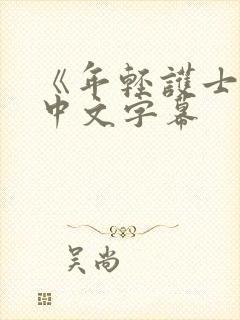 《年轻護士
中文字幕
吴尚